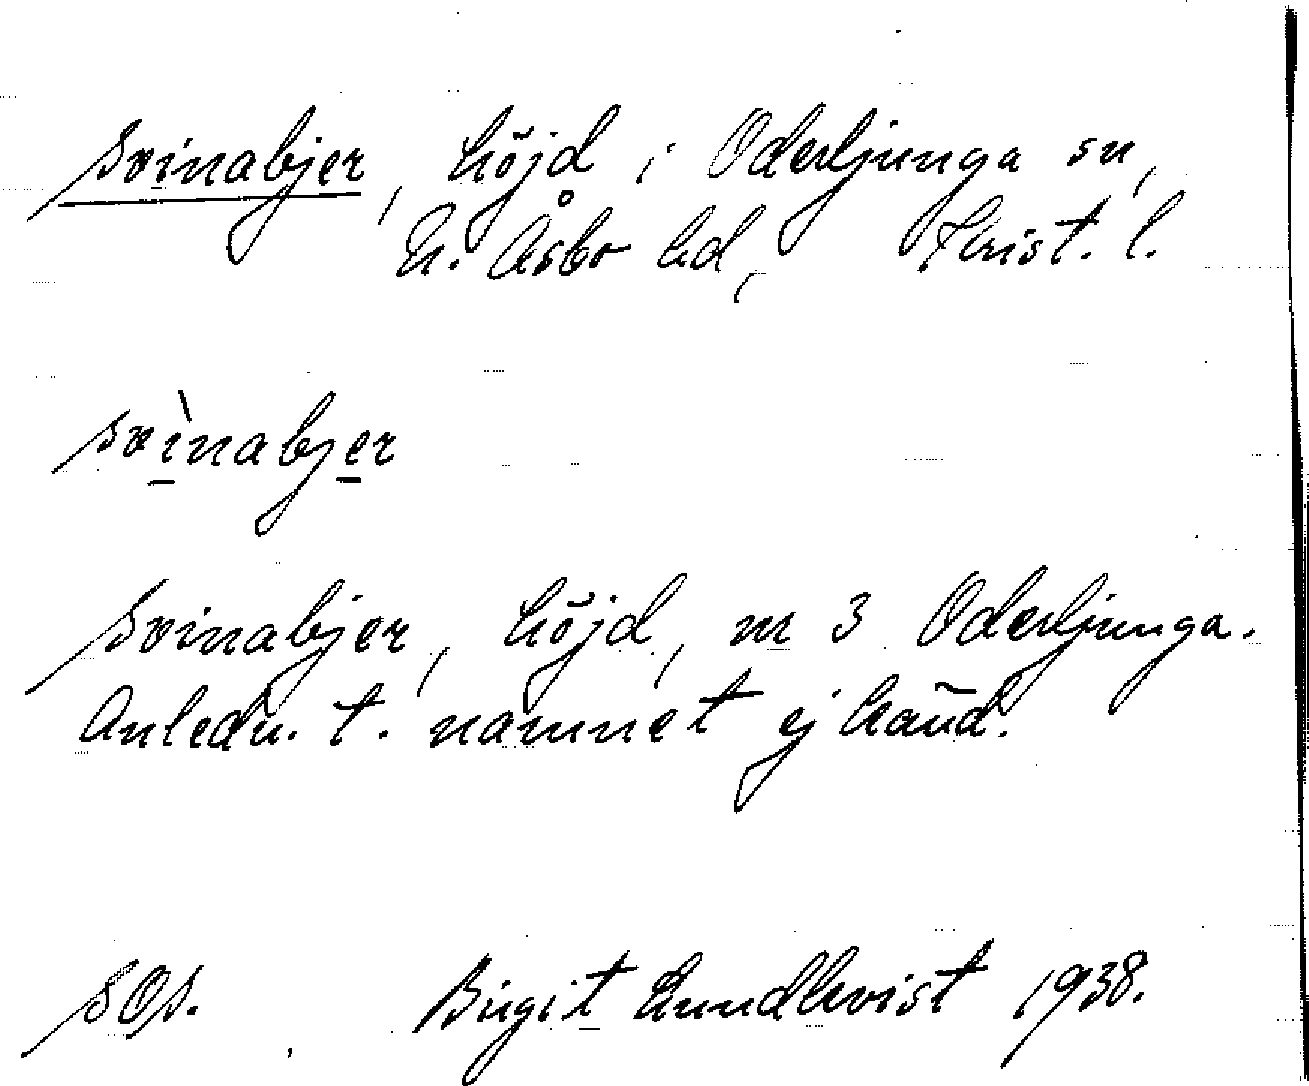 Svinabjer, höjd i Oderljunga sn,
N. Åsbo hd, Krist. l.
svìnabjer
Svinabjer, höjd, m 3 Oderljunga.
Anledn. t. namnet ej känd.
SOS. Birgit Lundkvist 1938.